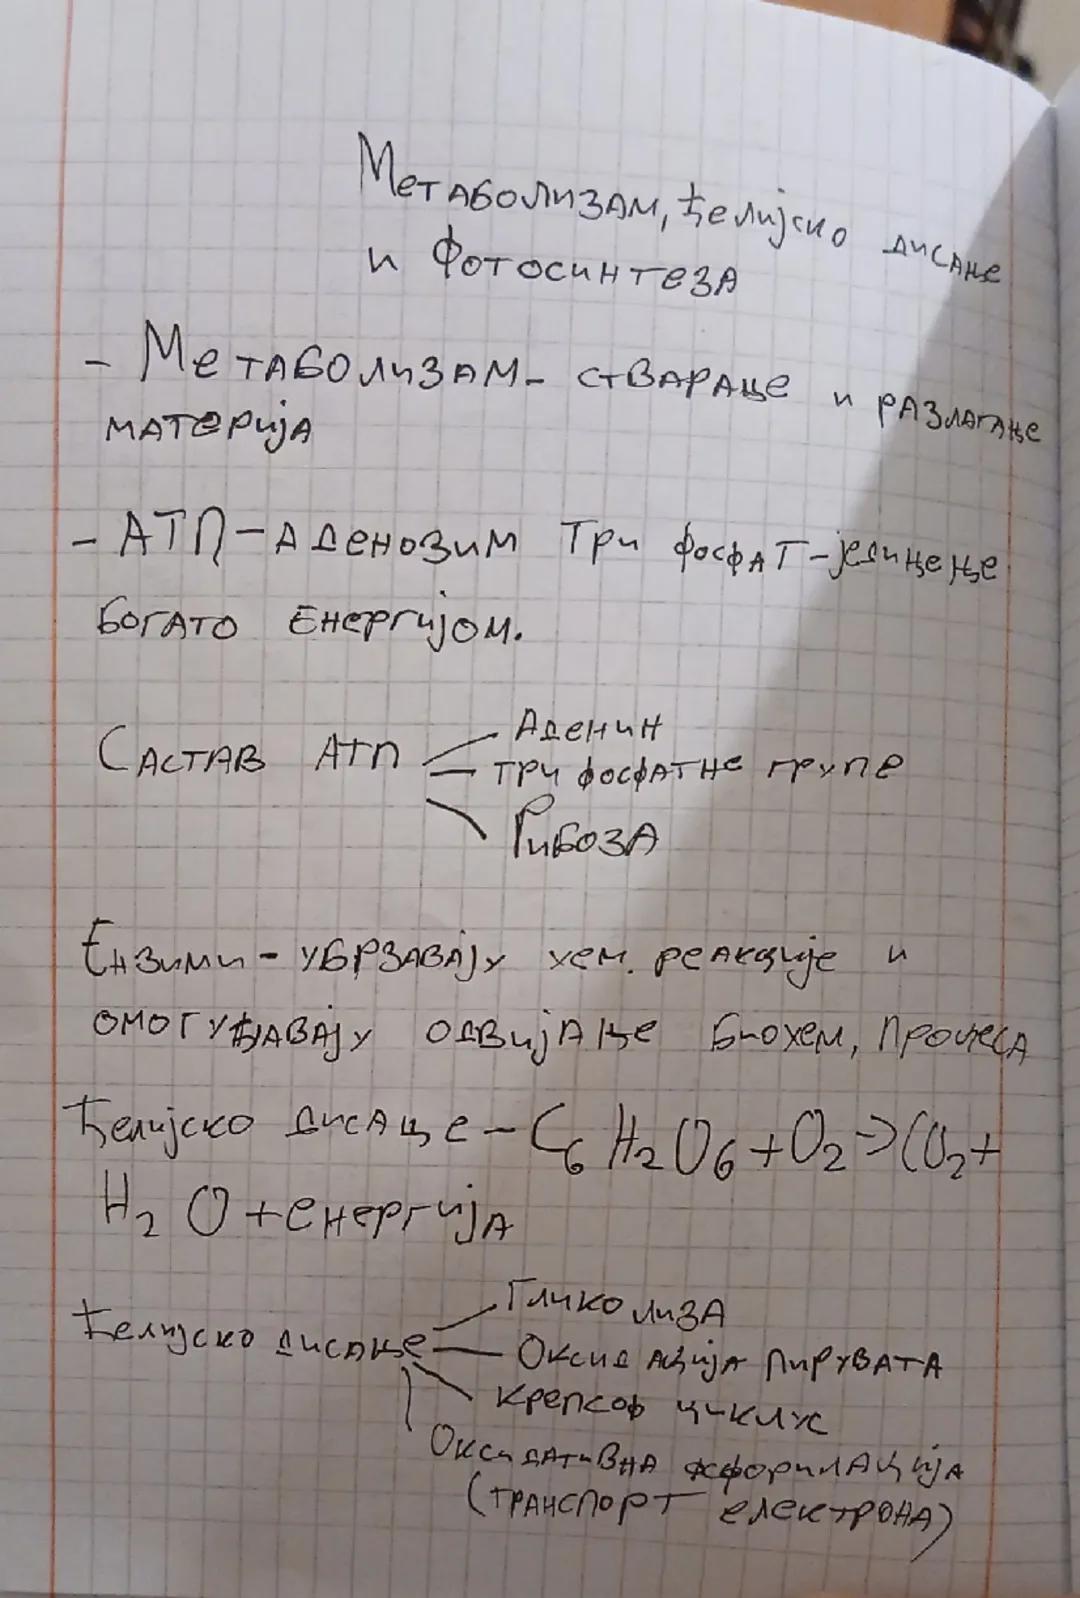 Метаболизам, ћелијско дисање
и Фотосинтеза
- Метаболизам - стварање и разлагање
материја
- АТП - Аденозим Три фосфат - једињење
богато Енергијом.
Састав АТП
Аденин
три фосфатне групе
Рибоза
Ензими - убрзавају хем. реакције и
омогућавају одвијање биохем, процеса
Ћелијско дисање - C₆ H₂ O₆ + O₂ → CO₂ +
H₂ O + енергија
Ћелијско дисање
Гликолиза
Оксидација пирувата
Крепсоф циклус
Оксидативна форилација
(транспорт електрона)